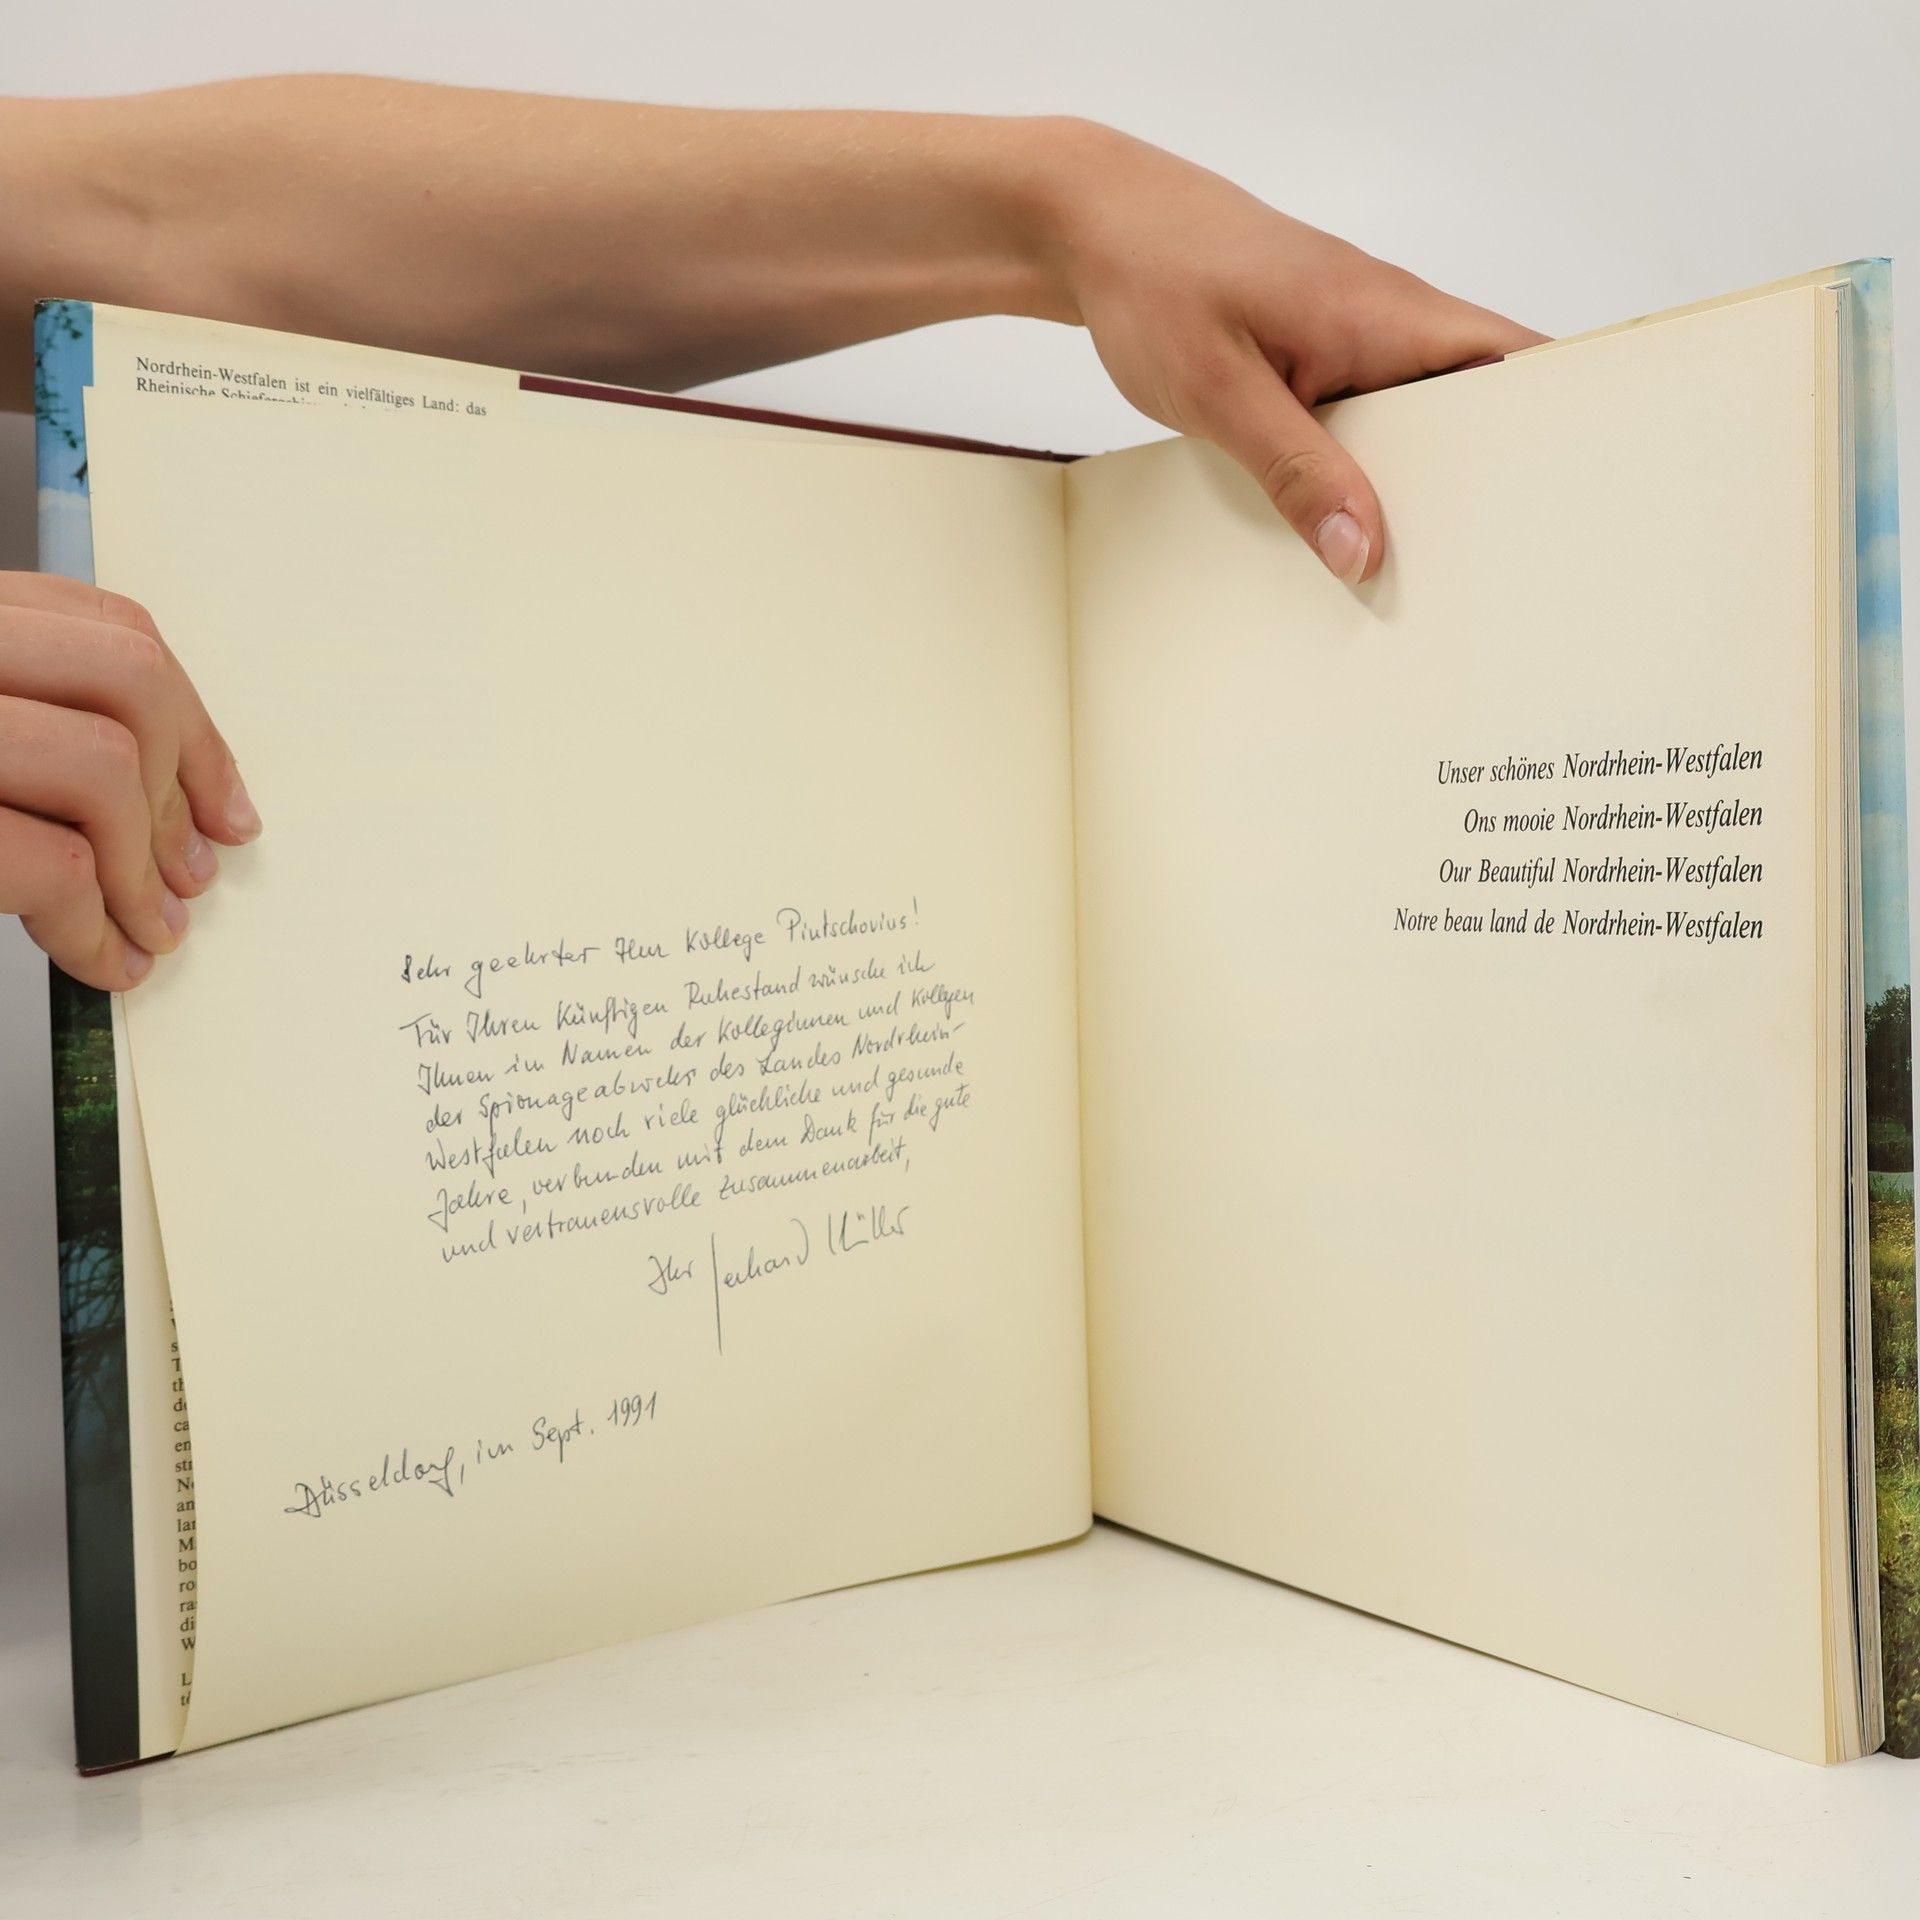 Nordrhein-Westfalen ist ein vielfältiges Land: das
Rheinische
Sehr geehrter Herr Kollege Pintschovius!
Für Ihren künftigen Ruhestand wünsche ich
Ihnen im Namen der Kolleginnen und Kollegen
der Spionageabwehr des Landes Nordrhein-
Westfalen noch viele glückliche und gesunde
Jahre, verbunden mit dem Dank für die gute
und vertrauensvolle Zusammenarbeit,
Ihr Gerhard Müller
Düsseldorf, im Sept. 1991
Unser schönes Nordrhein-Westfalen
Ons mooie Nordrhein-Westfalen
Our Beautiful Nordrhein-Westfalen
Notre beau land de Nordrhein-Westfalen